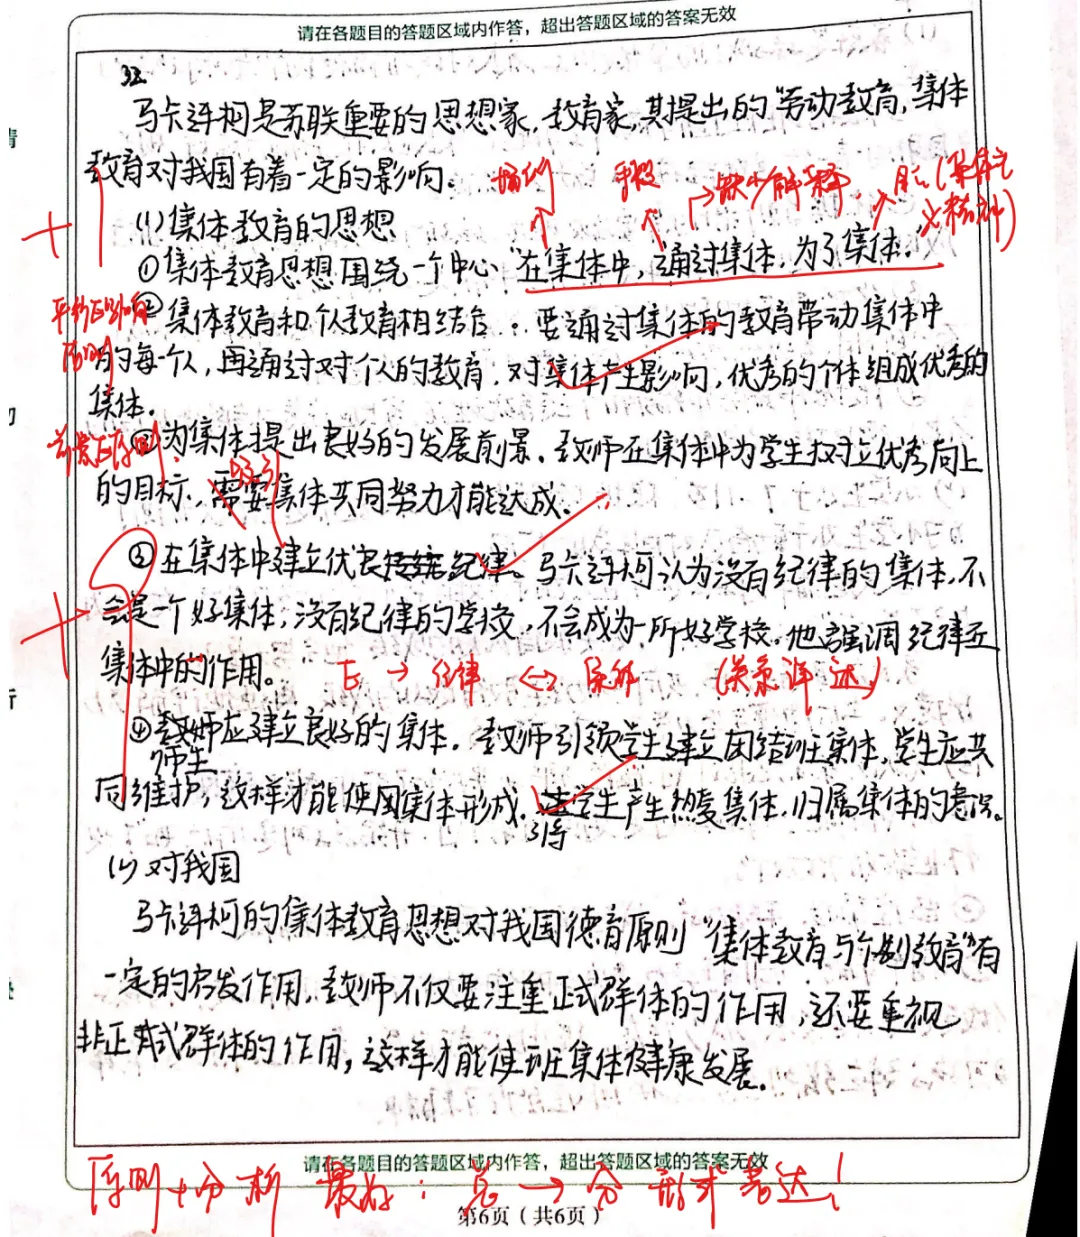 请在各题目的答题区域内作答，超出答题区域的答案无效
32.
马卡连柯是苏联重要的思想家、教育家，其提出的"劳动教育，集体
教育对我国有着一定的影响。
手段
→缺少解释
(1)集体教育的思想
①集体教育思想围绕一个中心"在集体中，通过集体，为了集体。"
平行影响
原则
②集体教育和个教育相结合：要通过集体的教育带动集体中
的每一个人，再通过对个人的教育，对集体产生影响，优秀的个体组成优秀的
集体。
③为集体提出良好的发展前景，教师在集体中为学生树立优秀向上
的目标，需要集体共同努力才能达成。
③在集体中建立优良纪律。马卡连柯认为没有纪律的集体，不
会是一个好集体；没有纪律的学校，不会成为一所好学校。他强调纪律在
集体中的作用。
→ 纪律 ↔
④教师应建立良好的集体。教师引领学生建立团结班集体，学生应共
师生
同维护，这样才能使集体形成。学生产生热爱集体，归属集体的意识。
(2)对我国
马卡连柯的集体教育思想对我国德育原则"集体教育与个别教育"有
一定的启发作用，教师不仅要注重正式群体的作用，还要重视
非正式群体的作用，这样才能使班集体健康发展。
请在各题目的答题区域内作答，超出答题区域的答案无效
原则+分析 最好：总→分 形式表达！
第6页（共6页）